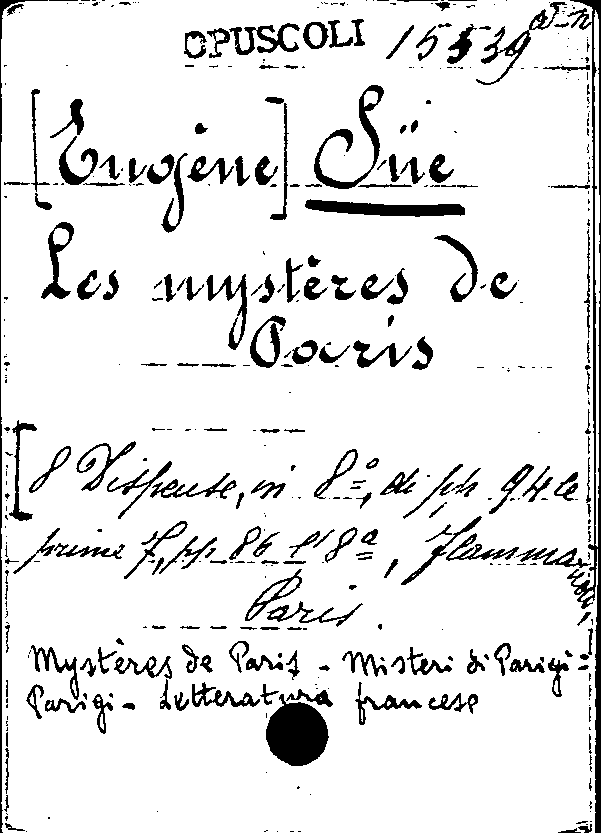 OPUSCOLI 15539 a-n
[Eugène] Süe
Les mystères de
Paris
[8 Dispense, in 8º, di pp 94 le
prime 7, pp 86 l'8ª, Flammarion,
Paris.
Mystères de Paris - Misteri di Parigi =
Parigi - Letteratura francese